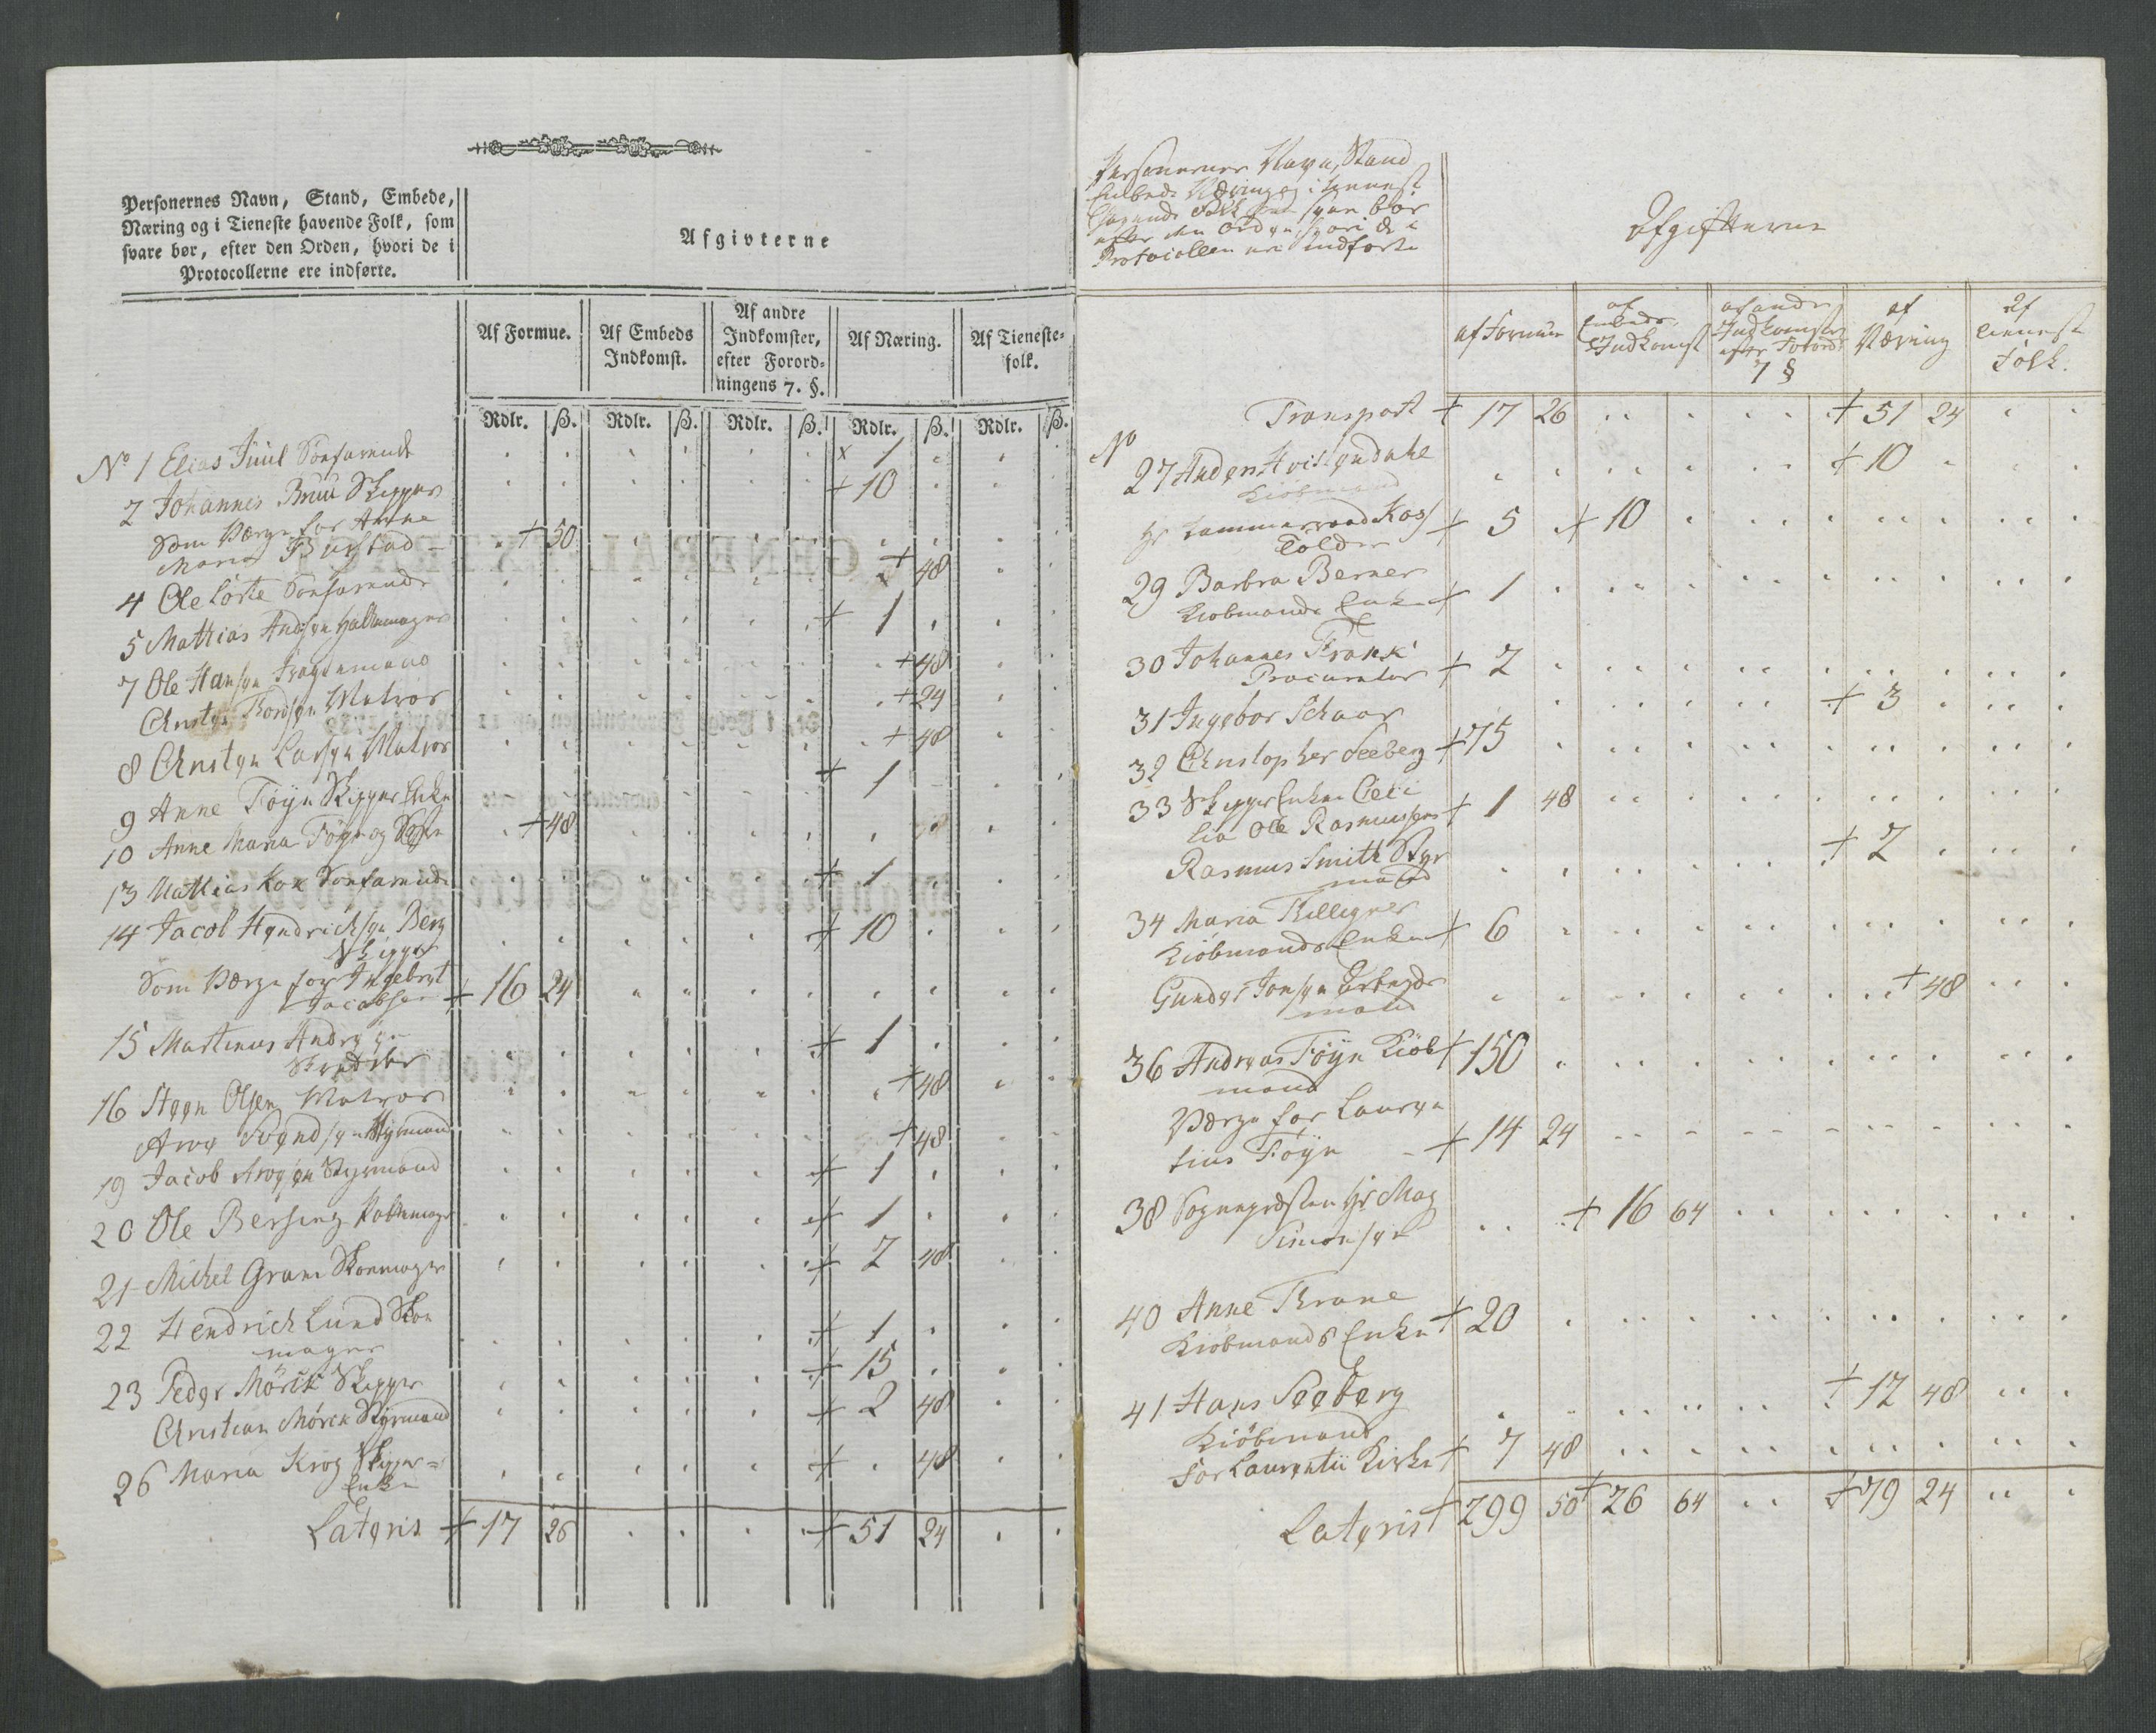 Personernes Navn, Stand, Embede,
Næring og i Tieneste havende Folk, som
svare bør, efter den Orden, hvori de i
Protocollerne ere indførte.
Afgivterne
Af Formue.
Af Embeds
Indkomst.
Af andre
Indkomster,
efter Forord-
ningens 7. §.
Af Næring.
Af Tieneste-
folk.
Rdlr. ß. Rdlr. ß. Rdlr. ß. Rdlr. ß. Rdlr. ß.
No 1 Elias Juul Søefarende x 1
2 Johannes Bruu Skipper + 10
Som Værge for Anne
Maria Bustad + 50
4 Ole Sørte Søefarende + 48
5 Mathias Andsen Hattemager + 1
7 Ole Hansen + 48
Christen Thordsen Matros + 24
8 Christen Larsen Matros + 48
9 Anne Føyn Skipper Enke + 1
10 Anne Maria Føyn og + 48
13 Mathias Kox Søefarende + 1
14 Jacob Hendrichsen Berg
Skipper + 10
Som Værge for Ingebret
Jacobsen + 16 24
15 Martinus
Skrædder + 1
16 Steen Olsen Matros + 48
Arve Svendsen Styrmand + 48
19 Jacob Styrmand + 1
20 Ole Bersing + 1
21 Michel Gram Skoemager + 2 48
22 Hendrich Lund Skoe
mager + 1
23 Peder Mörck Skipper + 15
Christian Mörck Styrmand + 2 48
26 Maria Krog Skipper=
Enke + 48
Lateris + 17 26 + 51 24
Personernes Navn, Stand
Embede Næring og i tienest
havende Folk som svare bør
efter den Orden hvori de i
Protocollen ere indførte
Afgifterne
af Formue
af
Embeds
Indkomst
af andre
Indkomster
efter Forord
7 §
af
Næring
Af
tienest
Folk.
Transport + 17 26 + 51 24
No
27 Anders Hvistendahl
Kiöbmand + 10
Hr Cammerraad Kos
Tolder + 5 + 10
29 Barbra Berner
Kiobmands Enke + 1
30 Johannes Frank
Procurator + 2
31 Ingebor Schaar + 3
32 Christopher Seeberg + 75
33 Skipper Enken Ceci
lia Ole Rasmussens + 1 48
Rasmus Smith Styr
mand + 2
34 Maria Thilleyner
Kiöbmands Enke + 6
Gunder Jonsen Arbeyds
mand + 48
36 Andreas Föyn Kiöb
mand + 150
Værge for Lauren
tius Föyn + 14 24
38 Sognepresten Hr Mag
Simonsen + 16 64
40 Anne Thrane
Kiöbmands Enke + 20
41 Hans Seeberg
Kiöbmand + 12 48
For Laurentii Kirke + 7 48
Lateris + 299 50 + 26 64 + 79 24